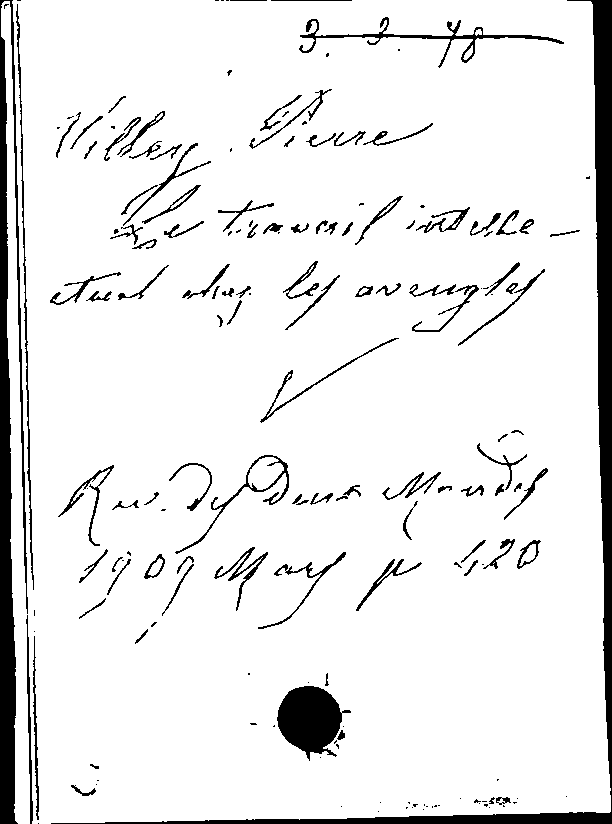 3. 3. 48
Villey. Pierre
Le travail intelle-
ctuel chez les aveugles
Rev. des Deux Mondes
1909 Mars p 420